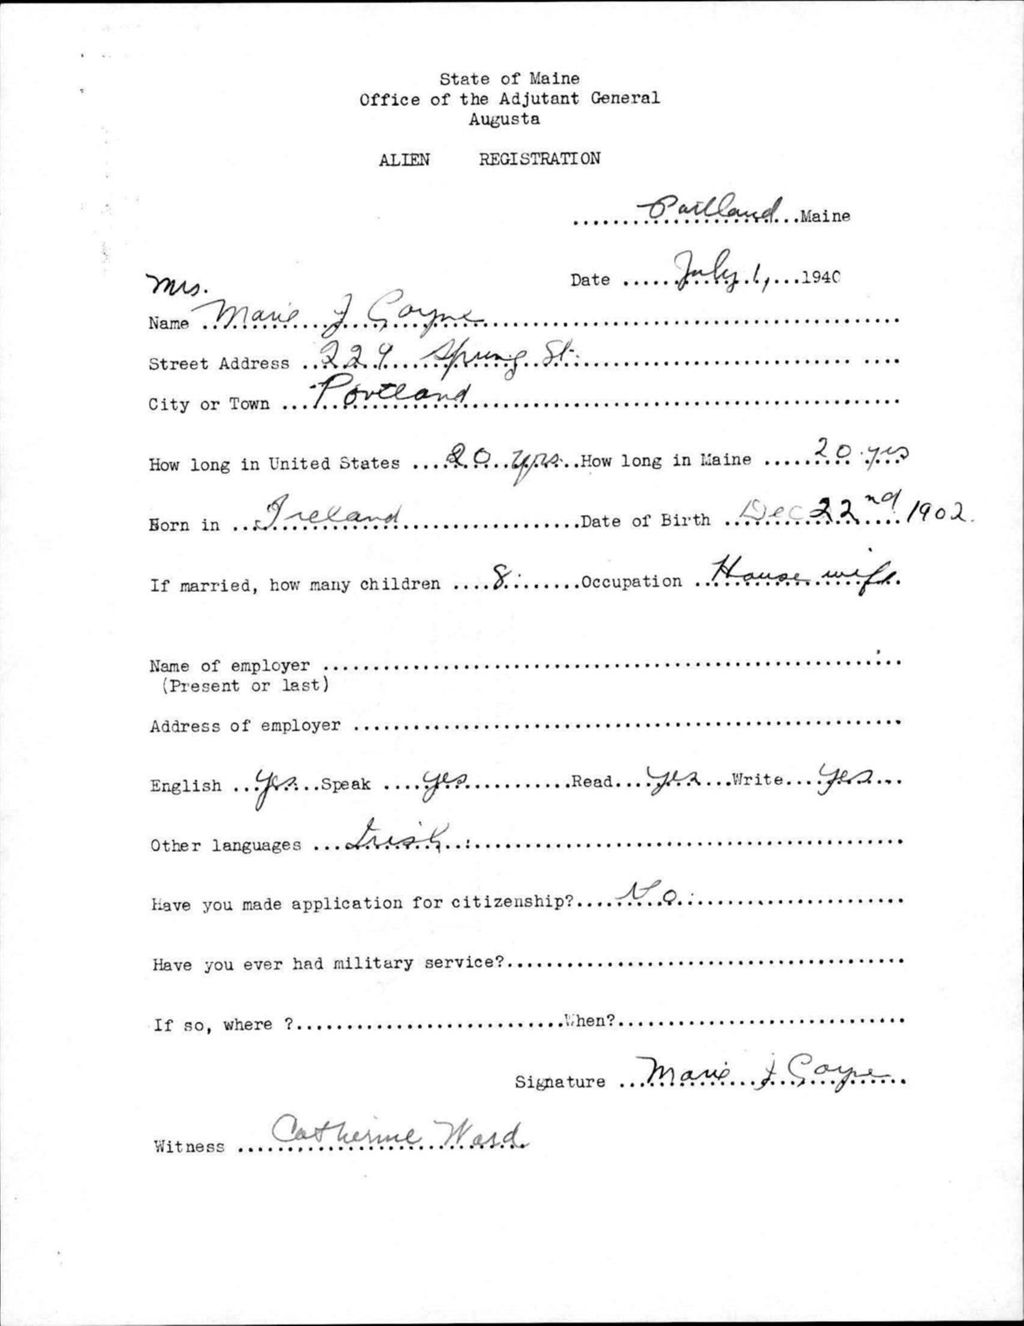 State of Maine
Office of the Adjutant General
Augusta
ALIEN REGISTRATION
.......Portland...Maine
Date ......July 1,...1940
Mrs.
Name ..Marie J Coyne..................................................
Street Address ..229 Spring St............................... ....
City or Town ...Portland...................................................
How long in United States ....20 yrs..How long in Maine ......20 yrs
Born in ...Ireland......................Date of Birth ..Dec 22nd 1902.
If married, how many children ....8........Occupation ..House wife.
Name of employer ......................................................................
(Present or last)
Address of employer ..................................................................
English ..Yes...Speak ....yes.............Read....Yes...Write...Yes...
Other languages ...Irish.....................................................
Have you made application for citizenship?....No..........................
Have you ever had military service?................................................
If so, where ?.................................When?...................................
Signature ..Marie J Coyne..
Witness ....Catherine Ward